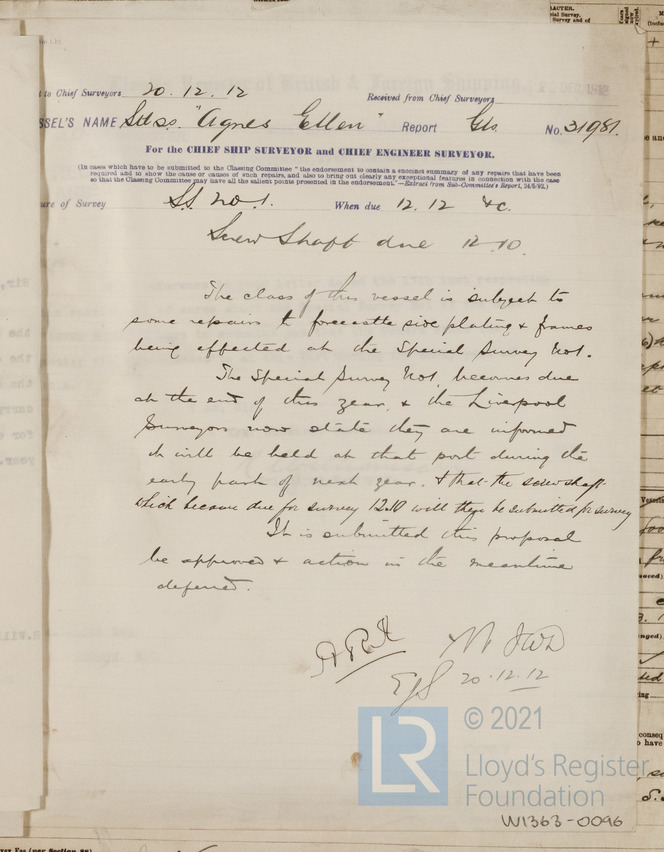 to Chief Surveyors 20.12.12
Received from Chief Surveyors
SSEL'S NAME "Agnes Ellen" Report Gls. No. 31981.
For the CHIEF SHIP SURVEYOR and CHIEF ENGINEER SURVEYOR.
(In cases which have to be submitted to the Classing Committee "the endorsement to contain a succinct summary of any repairs that have been
required and to show the cause or causes of such repairs, and also to bring out clearly any exceptional features in connection with the case
so that the Classing Committee may have all the salient points presented in the endorsement."—Extract from Sub-Committee's Report, 24/5/92.)
ure of Survey S.S. No 1. When due 12.12 &c.
Screw Shaft due 12.10.
The class of this vessel is subject to
some repairs to forecastle side plating & frames
being effected at the Special Survey No1.
The Special Survey No1. becomes due
at the end of this year, & the Liverpool
Surveyors now state they are informed
it will be held at that port during the
early part of next year. & that the screwshaft
which became due for survey 12.10 will then be submitted for survey
It is submitted this proposal
be approved & action in the meantime
deferred.
20.12.12
LR © 2021
Lloyd's Register
Foundation
W1363-0096